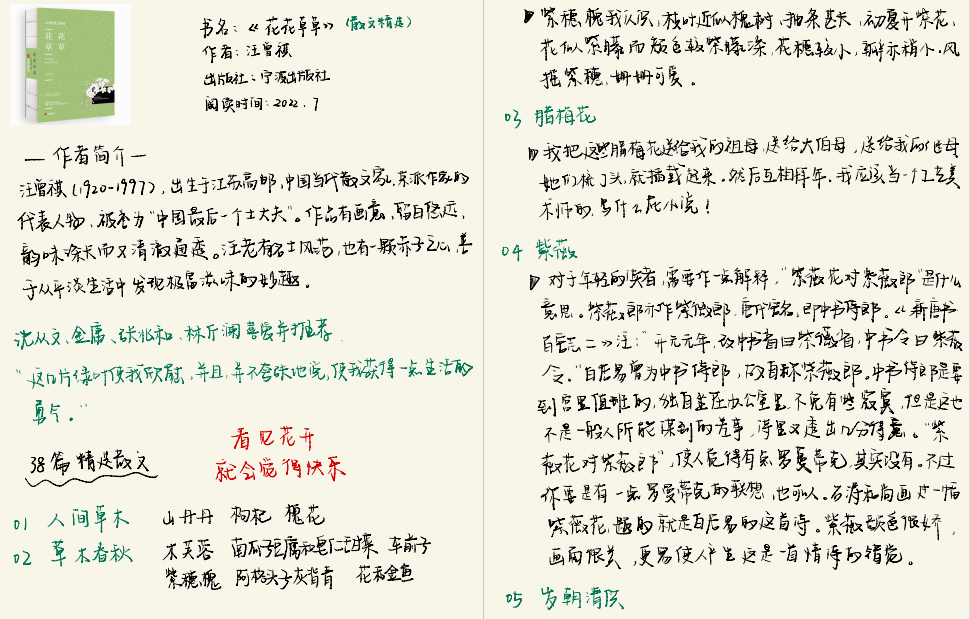 书名：《花花草草》（散文精选）
作者：汪曾祺
出版社：宁波出版社
阅读时间：2022.7
— 作者简介 —
汪曾祺（1920-1997），出生于江苏高邮，中国当代散文家，京派作家的
代表人物，被誉为“中国最后一个士大夫”。作品有画意，
韵味绵长而又清澈通透。汪老有名士风范，也有一颗赤子之心，善
于从平淡生活中发现极富滋味的妙趣。
沈从文、金庸、张兆和、林斤澜喜爱并推荐
“这几片绿叶使我欣慰，并且，并不夸张地说，使我获得一点生活的
勇气。”
看见花开
就会觉得快乐
38篇精选散文
01 人间草木 山丹丹 枸杞 槐花
02 草木春秋 木芙蓉 南瓜子豆腐和皂仁甜菜 车前子
紫穗槐 阿格头子灰背青 花和金鱼
紫穗槐我认识，枝叶近似槐树，抽条甚长，初夏开紫花，
花似紫藤而颜色较紫藤深，花穗较小，瓣亦稍小。风
摇紫穗，姗姗可爱。
03 腊梅花
我把这些腊梅花送给我的祖母，送给大伯母，送给我的继母
她们梳了头，就插戴起来。然后互相拜年。我应该当一个工艺美
术师的，写什么屁小说！
04 紫薇
对于年轻的读者，需要作一点解释，“紫薇花对紫薇郎”是什么
意思。紫薇郎亦作紫微郎，唐代官名，即中书侍郎。《新唐书
百官志二》注：“开元元年，改中书省曰紫微省，中书令曰紫微
令。”白居易曾为中书侍郎，故自称紫薇郎。中书侍郎是要
到宫里值班的，独自坐在办公室里，不免有些寂寞，但是这也
不是一般人所能谋到的差事，诗里又透出几分得意。“紫
薇花对紫薇郎”，使人觉得有点罗曼蒂克，其实没有。不过
你要是有一点罗曼蒂克的联想，也可以。石涛和尚画过一幅
紫薇花，题的就是白居易的这首诗。紫薇颜色很娇，
画面很美，更易使人产生这是一首情诗的错觉。
05 岁朝清供